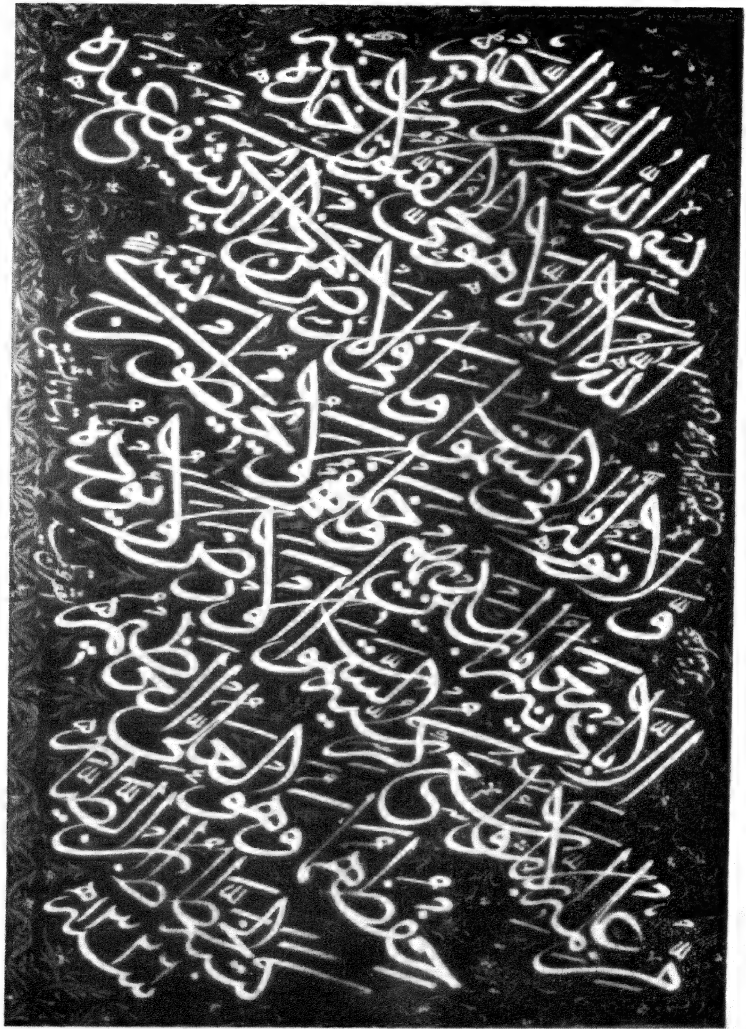 بسم الله الرحمن الرحيم
الله لا إله إلا هو الحي القيوم لا تأخذه سنة
ولا نوم له ما في السموات وما في الأرض من ذا الذي يشفع عنده
إلا بإذنه يعلم ما بين أيديهم وما خلفهم ولا يحيطون بشيء
من علمه إلا بما شاء وسع كرسيه السموات والأرض ولا يؤوده
حفظهما وهو العلي العظيم